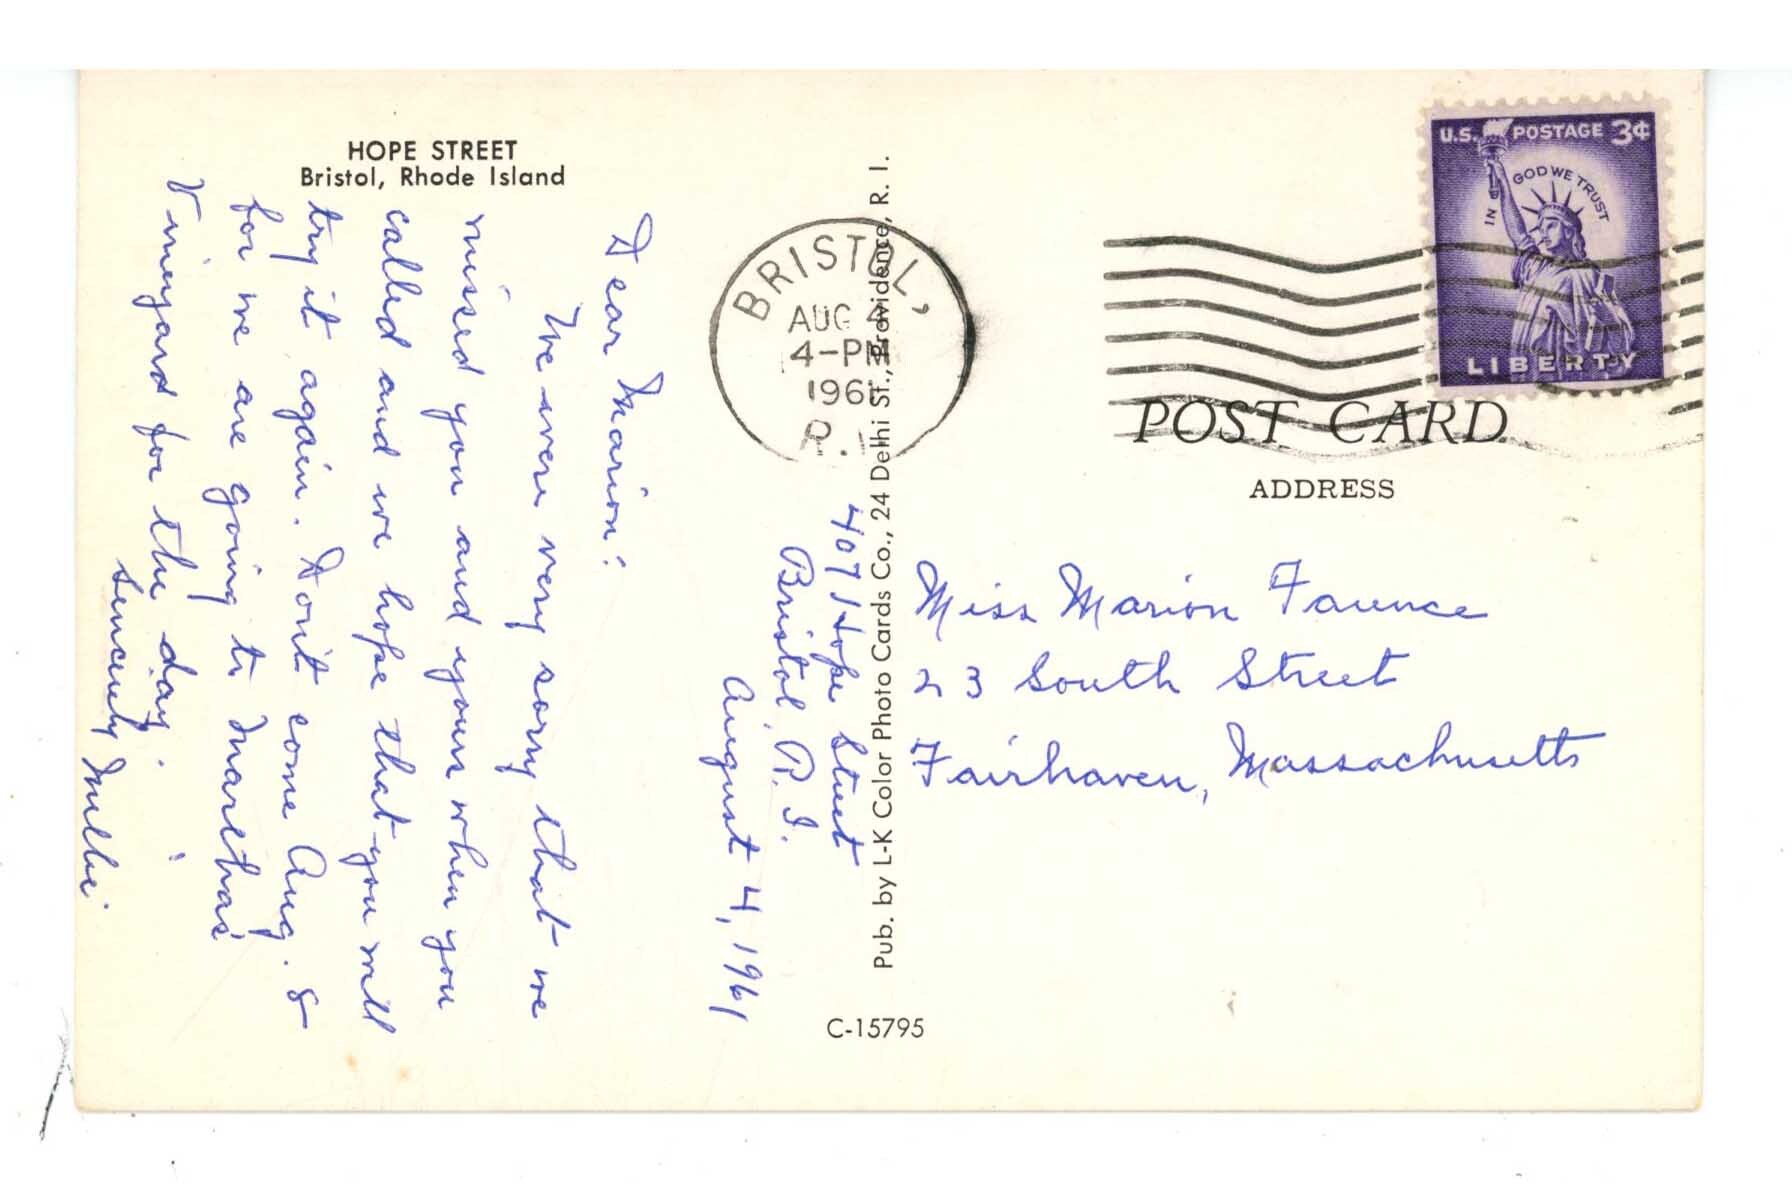 HOPE STREET
Bristol, Rhode Island
407 Hope Street
Bristol R. I.
August 4, 1961
Dear Marion:
We were very sorry that we
missed you and yours when you
called and we hope that you will
try it again. Don't come Aug. 8
for we are going to Martha's
Vineyard for the day.
Sincerely Millie
Pub. by L-K Color Photo Cards Co., 24 Delhi St., Providence, R. I.
C-15795
BRISTOL,
AUG 4
4-PM
1961
R.I.
U.S. POSTAGE 3¢
IN GOD WE TRUST
LIBERTY
POST CARD
ADDRESS
Miss Marion Faunce
23 South Street
Fairhaven, Massachusetts